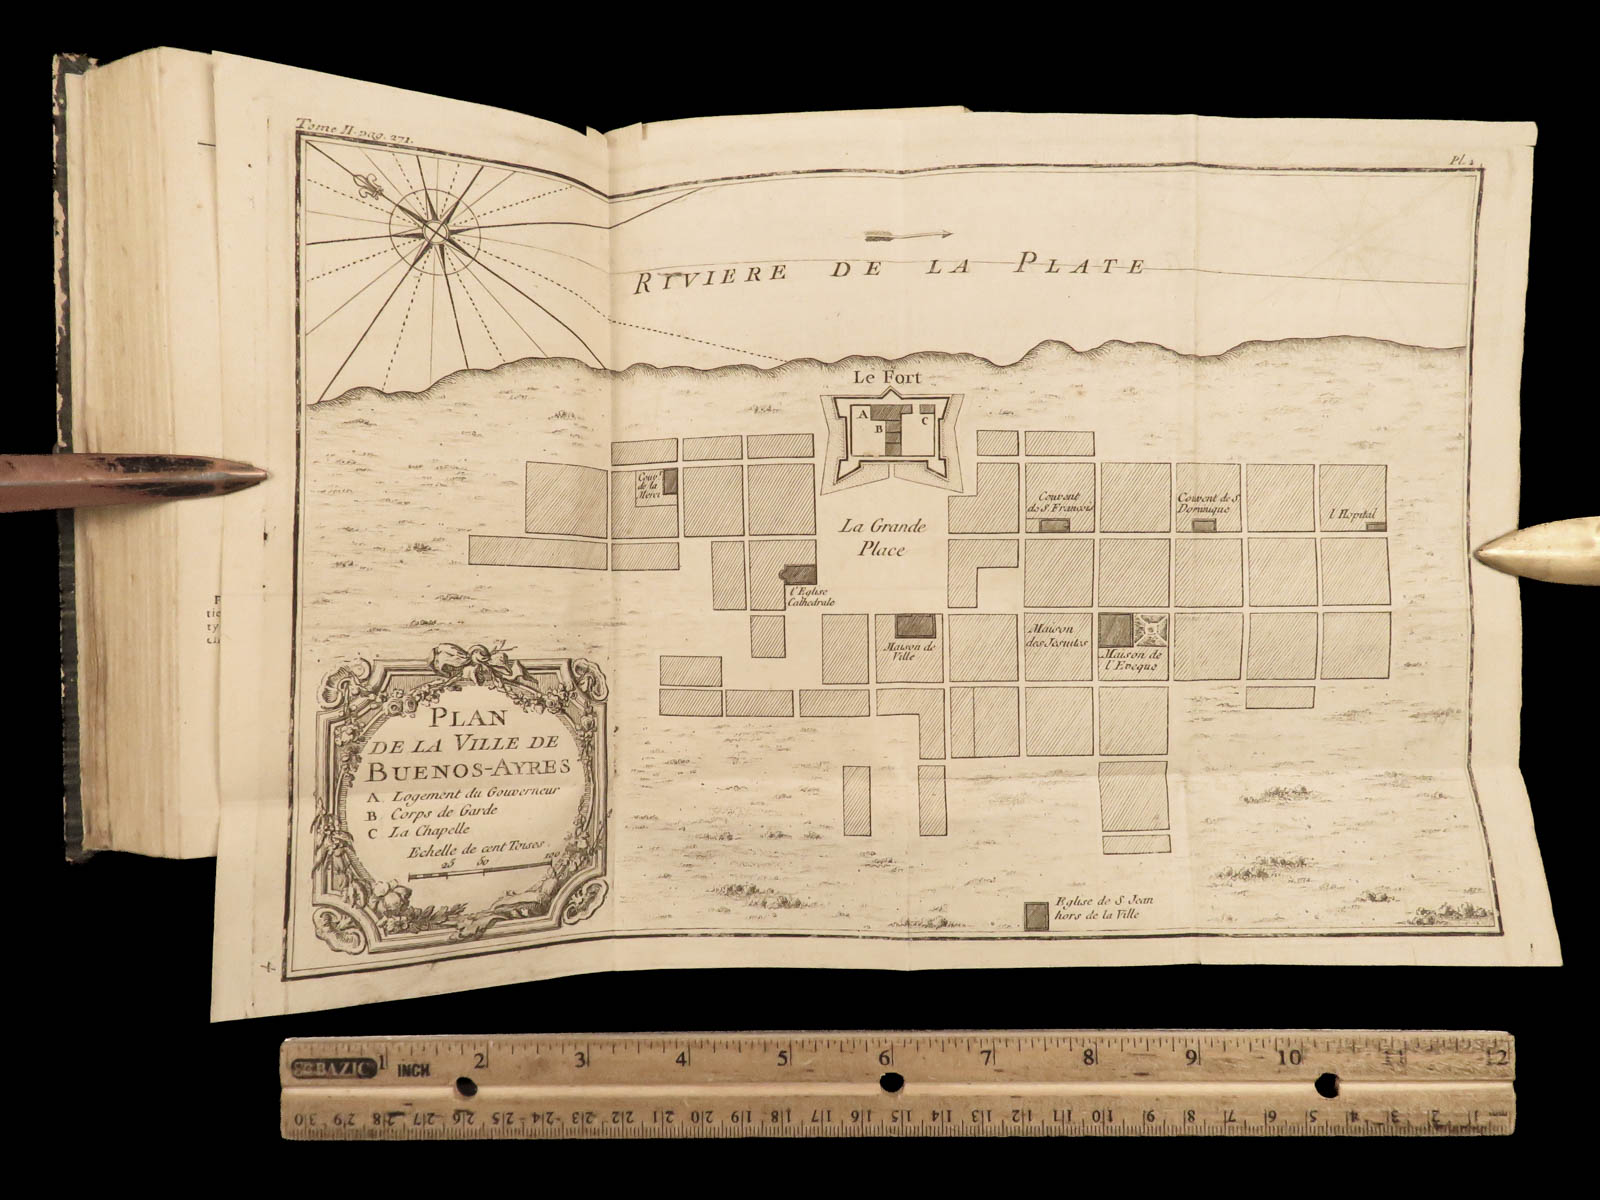 Tome II. pag. 271.
Pl.
RIVIERE DE LA PLATE
Le Fort
A
B
C
Couv.t
de la
Merci
La Grande
Place
Couvent
de S. François
Couvent de S.
Dominique
l'Hopital
l'Eglise
Cathedrale
Maison de
Ville
Maison
des Jesuites
Maison de
l'Eveque
PLAN
DE LA VILLE DE
BUENOS-AYRES
A. Logement du Gouverneur
B Corps de Garde
C La Chapelle
Echelle de cent Toises.
25 50 100
Eglise de S. Jean
hors de la Ville
BAZIC
INCH
1 2 3 4 5 6 7 8 9 10 11 12
30 29 28 27 26 25 24 23 22 21 20 19 18 17 16 15 14 13 12 11 10 9 8 7 6 5 4 3 2 1 mm